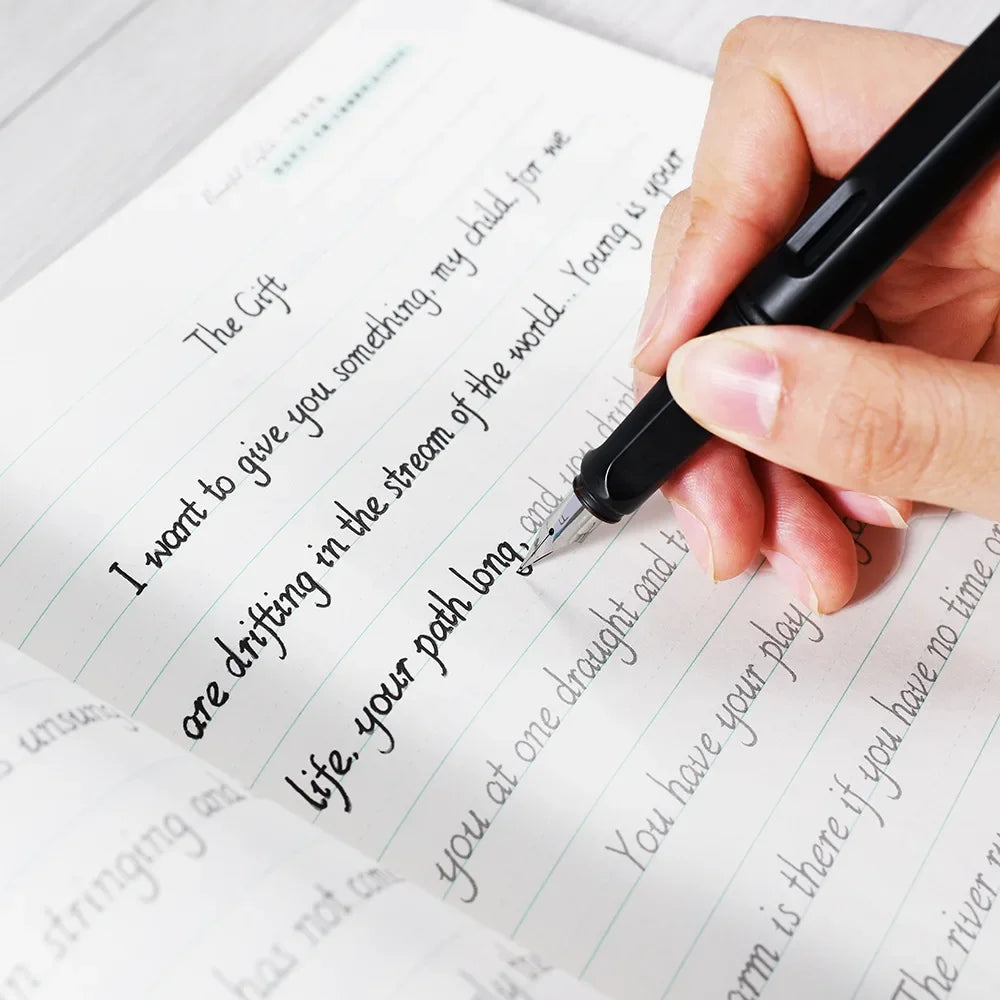 The Gift
I want to give you something, my child, for we
are drifting in the stream of the world... Young is your
life, your path long, and you drink
you at one draught and
You have your play
arm is there if you have no time or
The river
unsung
stringing and
has not